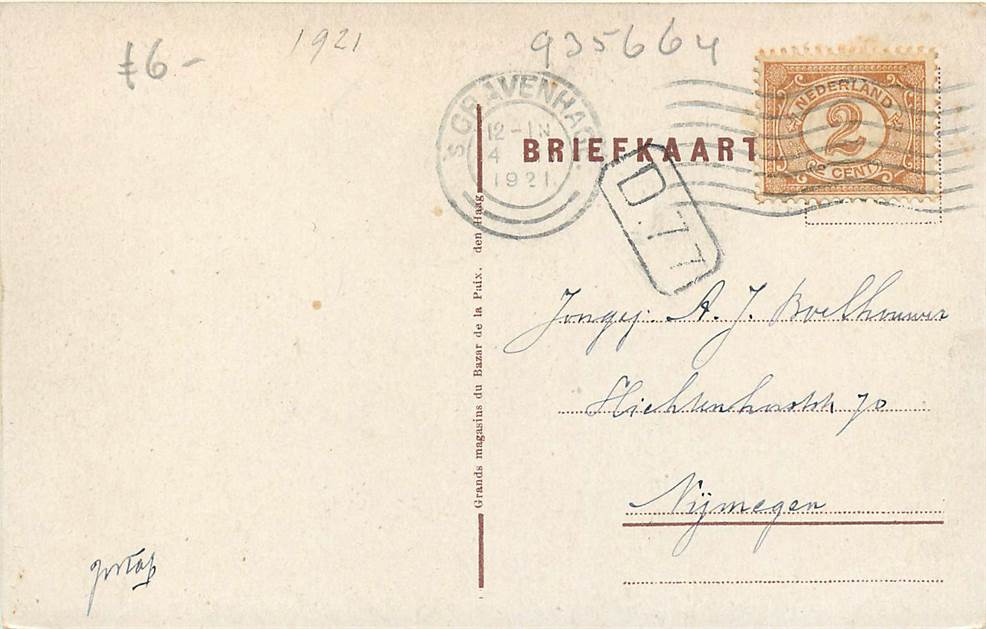 £6-
1921
935664
'S GRAVENHAGE
12-1N
4
1921
BRIEFKAART
NEDERLAND
2
2 CENT 2
D.77
Grands magasins du Bazar de la Paix. den Haag
Jongej: A. J. Boelhouwer
70
Nijmegen